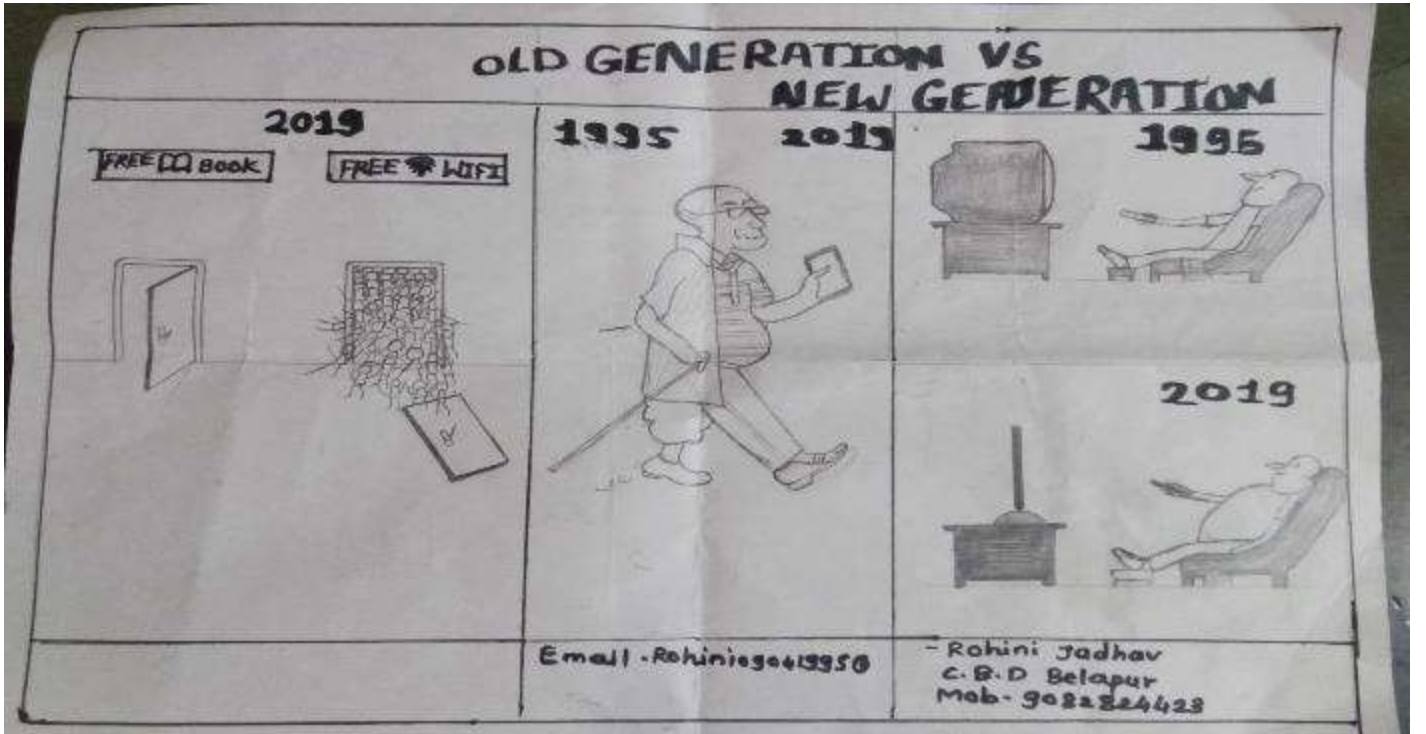 OLD GENERATION VS
NEW GENERATION
2019
FREE BOOK
FREE WIFI
1995
2019
1995
2019
- Rohini Jadhav
C.B.D Belapur
Mob- 9082824423